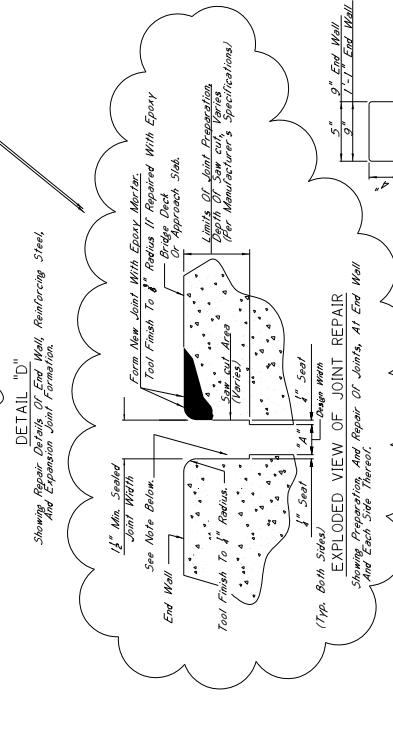 DETAIL "D"
Showing Repair Details Of End Wall, Reinforcing Steel,
And Expansion Joint Formation.
1½" Min. Sealed
Joint Width
See Note Below.
End Wall
Tool Finish To ¼" Radius.
Form New Joint With Epoxy Mortar.
Tool Finish To Radius If Repaired With Epoxy
Bridge Deck
Or Approach Slab.
Limits Of Joint Preparation.
Depth Of Saw cut, Varies
(Per Manufacturer's Specifications)
Saw cut Area
(Varies)
¼" Seat
"A"
¼" Seat
Design Width
(Typ. Both Sides)
EXPLODED VIEW OF JOINT REPAIR
Showing Preparation, And Repair Of Joints, At End Wall
And Each Side Thereof.
5" 9" End Wall
9" 1'-1" End Wall
"A"